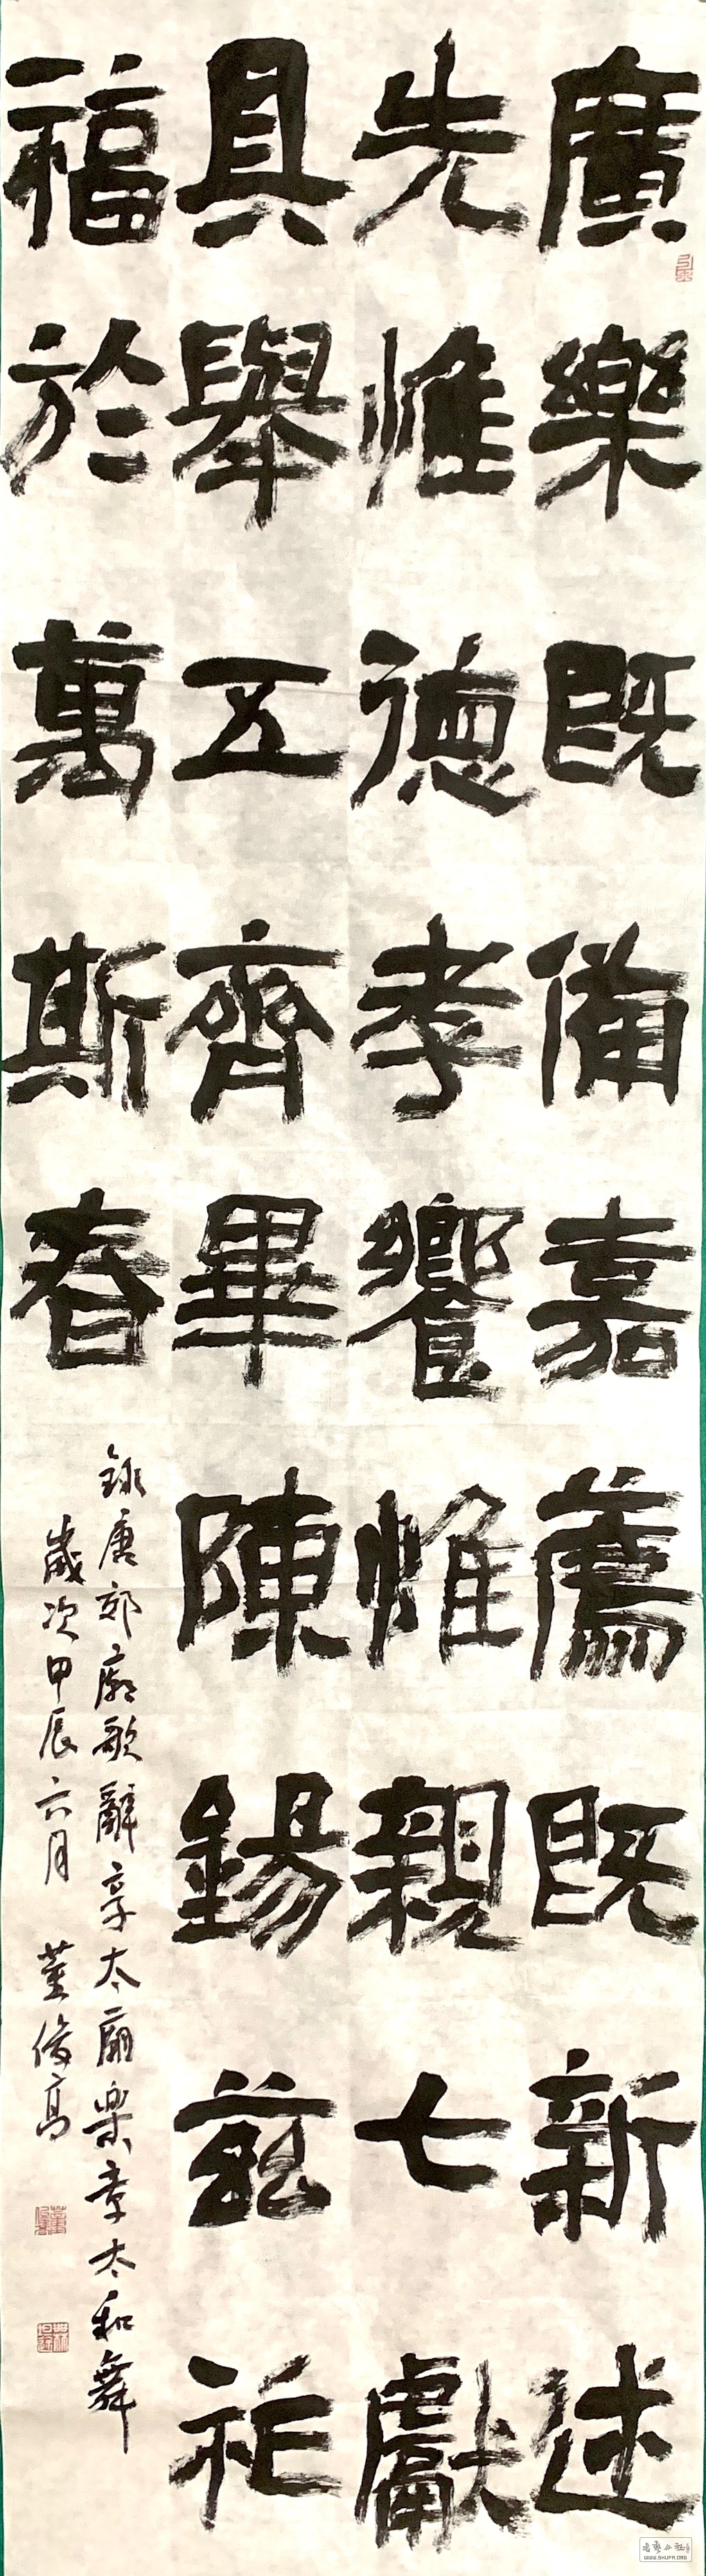 廣樂既備嘉薦既新述
先惟德孝饗惟親七獻
具舉五齊畢陳錫茲祚
福於萬斯春
錄唐郊廟歌辭享太廟樂章太和舞
歲次甲辰六月 董俊高
WWW.SHUFA.ORG